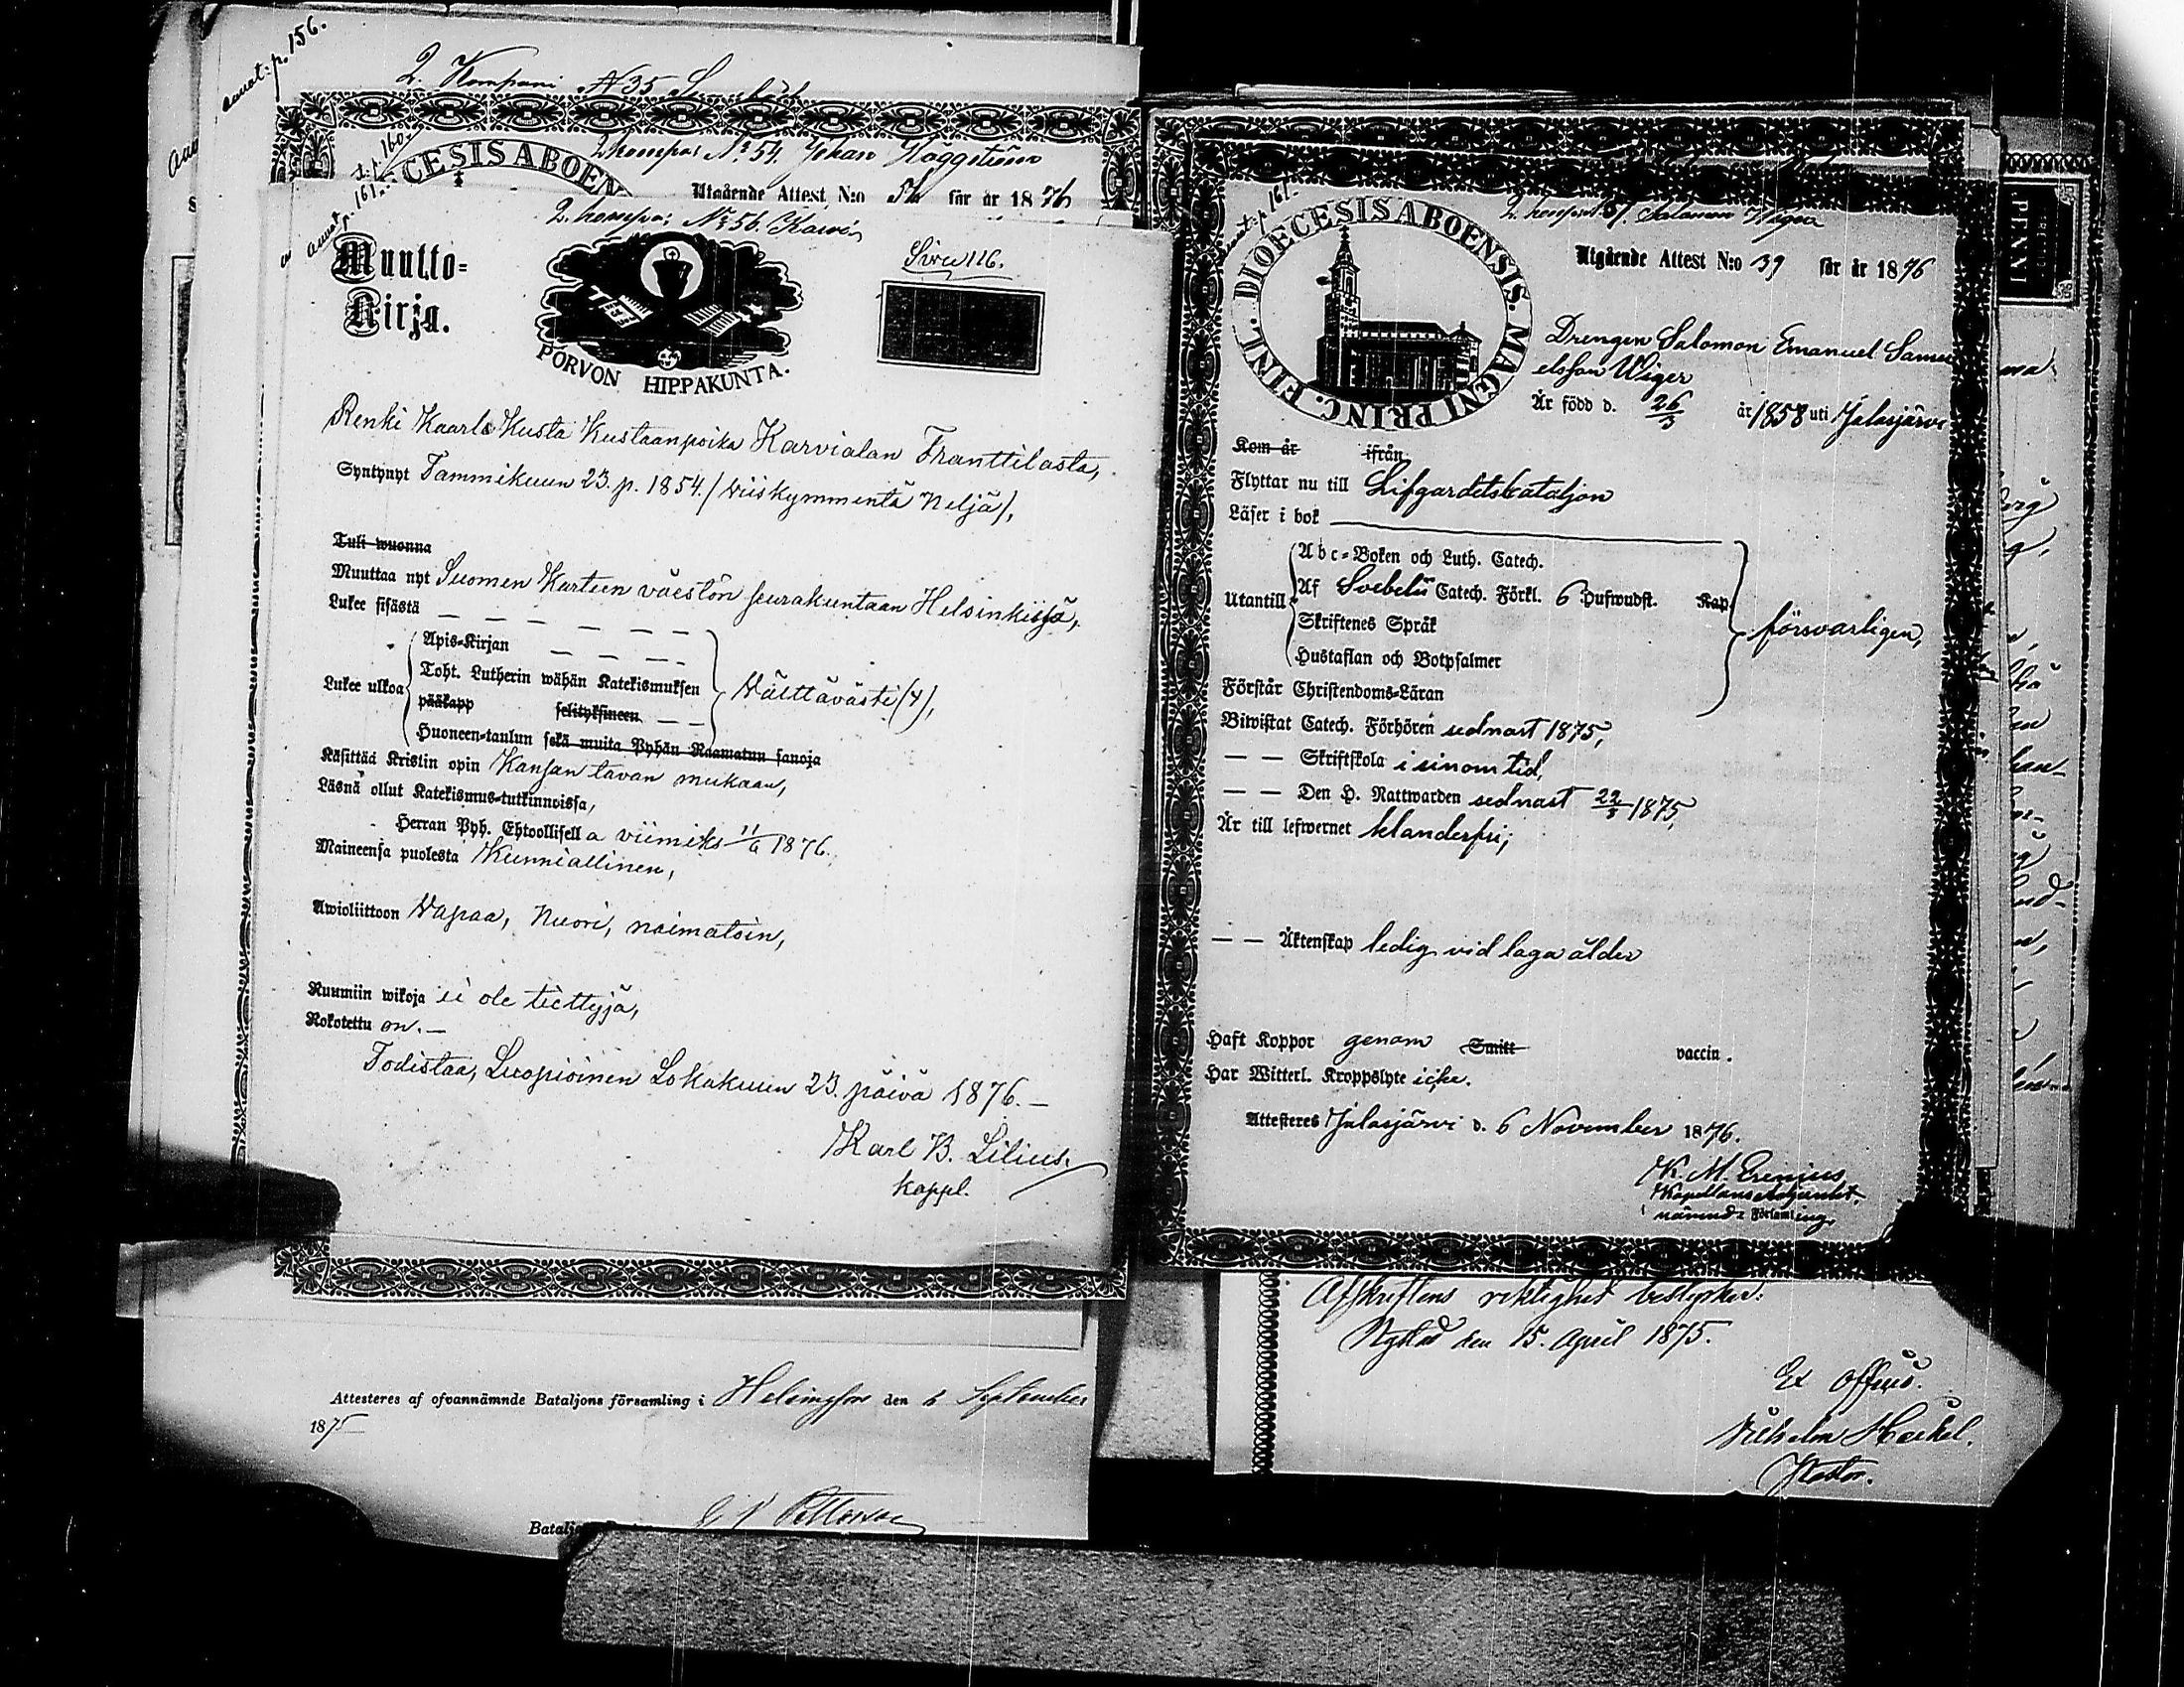 annot: p. 156.
2. Kompani N 35
DIOECESIS ABOEN
2 komp: No 54. Johan Häggström
Utgående Attest N:o 56 för år 1876
annot p. 161.
2. komp: No 56. Karvi
Muutto-
Kirja.
PORVON HIPPAKUNTA.
Sivu 116.
Renki Kaarle Kusta Kustaanpoika Karvialan Franttilasta,
Syntynyt Tammikuun 23. p. 1854. (viiskymmentä neljä),
Tuli wuonna
Muuttaa nyt Suomen Kaartin väestön seurakuntaan Helsinkiissä,
Lukee sisästä
Lukee ulkoa
Apis-Kirjan
Toht. Lutherin wähän Katekismuksen
pääkapp selityksineen
Huoneen-taulun sekä muita Pyhän Raamatun sanoja
Välttävästi (4),
Käsittää Kristin opin Kansan tavan mukaan,
Läsnä ollut Katekismus-tutkinnoissa,
Herran Pyh. Ehtoollisella viimiks 11/6 1876,
Maineensa puolesta Kunniallinen,
Awioliittoon Vapaa, nuori, naimatoin,
Ruumiin wikoja ei ole tiettyjä,
Rokotettu on.—
Todistaa, Luopioinen Lokakuun 23. päivä 1876.—
Karl B. Lilius.
kappl.
Attesteres af ofvannämnde Bataljons församling i Helsingfors den 6 September
1875
Bataljons
annot: p. 161.
2. komp: Salomon Wiger
DIOECESIS ABOENSIS. MAGNI PRINC. FINL.
Utgående Attest N:o 39 för år 1876
Drengen Salomon Emanuel Samu
elsson Wiger
Är född d. 26/3 år 1858 uti Jalasjärvi
Kom år ifrån
Flyttar nu till Lifgardetsbataljon
Läser i bok
Utantill
Abc-Boken och Luth. Catech.
Af Svebelii Catech. Förkl. 6 Hufwudst. Kap.
Skriftenes Språk
Hustaflan och Botpsalmer
försvarligen,
Förstår Christendoms-Läran
Biwistat Catech. Förhören sednast 1875,
— — Skriftskola i sinom tid,
— — Den H. Nattwarden sednast 22/8 1875,
Är till lefwernet klanderfri;
— — Äktenskap ledig vid laga ålder
Haft Koppor genom Smitt vaccin.
Har Witterl. Kroppslyte icke.
Attesteres Jalasjärvi d. 6 November 1876.
K. M. Erenius
Kapellansadjunkt
Afskriftens riktighet bestyrker:
Nystad den 15. April 1875.
Ex officio.
Wilhelm Heikel.
Pastor.
PENNI